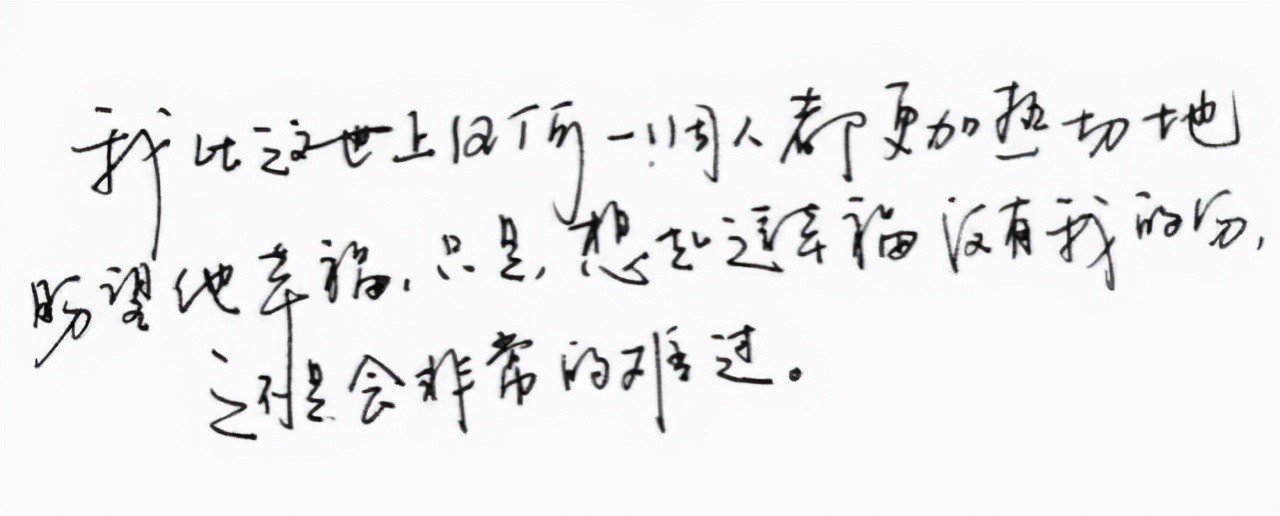 我比这世上任何一个人都更加热切地
盼望他幸福.只是,想起这幸福没有我的份,
还是会非常的难过。